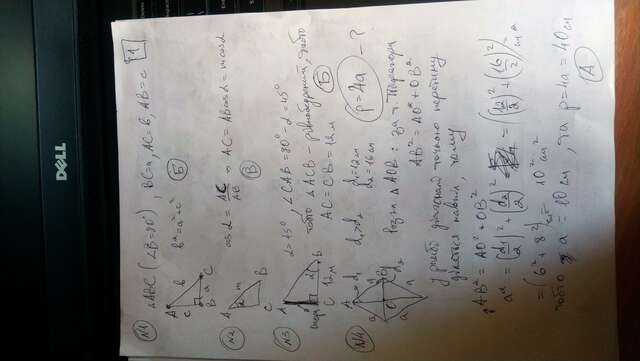 1
№1 △ABC (∠B=90°), BC=a, AC=b, AB=c
b²=a²+c² Б
A
c b
B a C
№2 cos α = AC/AB ⇒ AC = AB cos α = m cos α
В
A m B
C
№3 α=45°, ∠CAB=90°-α=45°
тобто △ACB - рівнобедрений, тобто
AC=CB=12м Б
A
C 12м B
№4 d₁=12см
d₂=16см
P=4a - ?
Розгл △AOB: за т. Піфагора
AB²=AO²+OB²
у ромбі діагоналі точкою перетину
діляться навпіл, тому
AB²=AO²+OB²
a²=(d₁/2)²+(d₂/2)²=(12/2)²+(16/2)²
=(6²+8²) 10² см²
тобто a=10см, та p=4a=40см
А
DELL